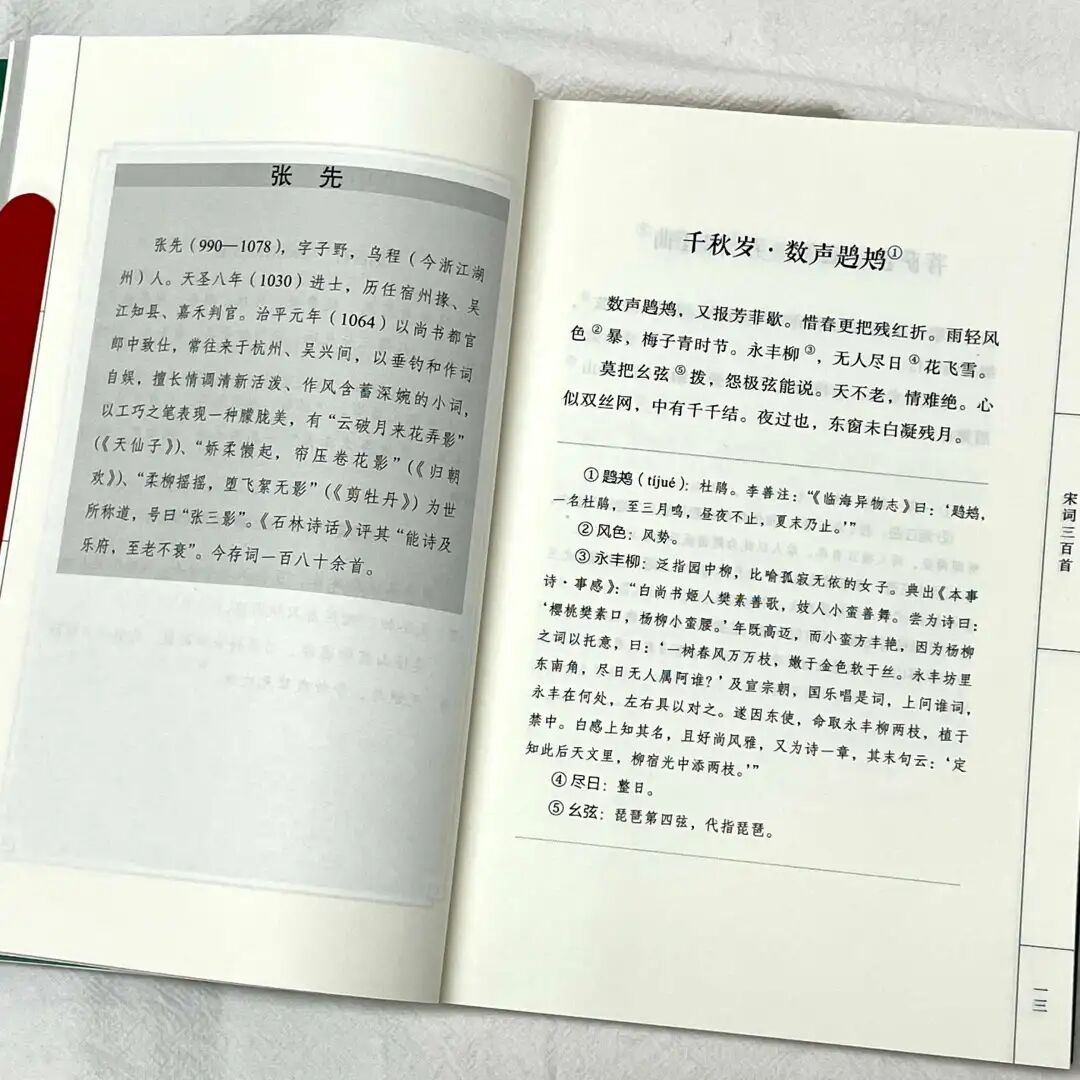 张 先
张先（990—1078），字子野，乌程（今浙江湖
州）人。天圣八年（1030）进士，历任宿州掾、吴
江知县、嘉禾判官。治平元年（1064）以尚书都官
郎中致仕，常往来于杭州、吴兴间，以垂钓和作词
自娱，擅长情调清新活泼、作风含蓄深婉的小词，
以工巧之笔表现一种朦胧美，有“云破月来花弄影”
（《天仙子》）、“娇柔懒起，帘压卷花影”（《归朝
欢》）、“柔柳摇摇，堕飞絮无影”（《剪牡丹》）为世
所称道，号曰“张三影”。《石林诗话》评其“能诗及
乐府，至老不衰”。今存词一百八十余首。
千秋岁·数声鶗鴂①
数声鶗鴂，又报芳菲歇。惜春更把残红折。雨轻风
色②暴，梅子青时节。永丰柳③，无人尽日④花飞雪。
莫把幺弦⑤拨，怨极弦能说。天不老，情难绝。心
似双丝网，中有千千结。夜过也，东窗未白凝残月。
①鶗鴂（tíjué）：杜鹃。李善注：“《临海异物志》曰：‘鶗鴂，
一名杜鹃，至三月鸣，昼夜不止，夏末乃止。’”
②风色：风势。
③永丰柳：泛指园中柳，比喻孤寂无依的女子。典出《本事
诗·事感》：“白尚书姬人樊素善歌，妓人小蛮善舞。尝为诗曰：
‘樱桃樊素口，杨柳小蛮腰。’年既高迈，而小蛮方丰艳，因为杨柳
之词以托意，曰：‘一树春风万万枝，嫩于金色软于丝。永丰坊里
东南角，尽日无人属阿谁？’及宣宗朝，国乐唱是词，上问谁词，
永丰在何处，左右具以对之。遂因东使，命取永丰柳两枝，植于
禁中。白感上知其名，且好尚风雅，又为诗一章，其末句云：‘定
知此后天文里，柳宿光中添两枝。’”
④尽日：整日。
⑤幺弦：琵琶第四弦，代指琵琶。
宋词三百首
一三